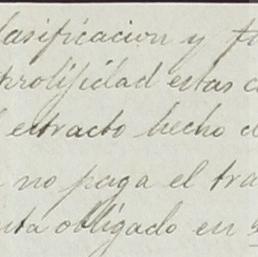 lasificacion y
prolifidad estas
extracto hecho d
no paga el tra
nta obligado en